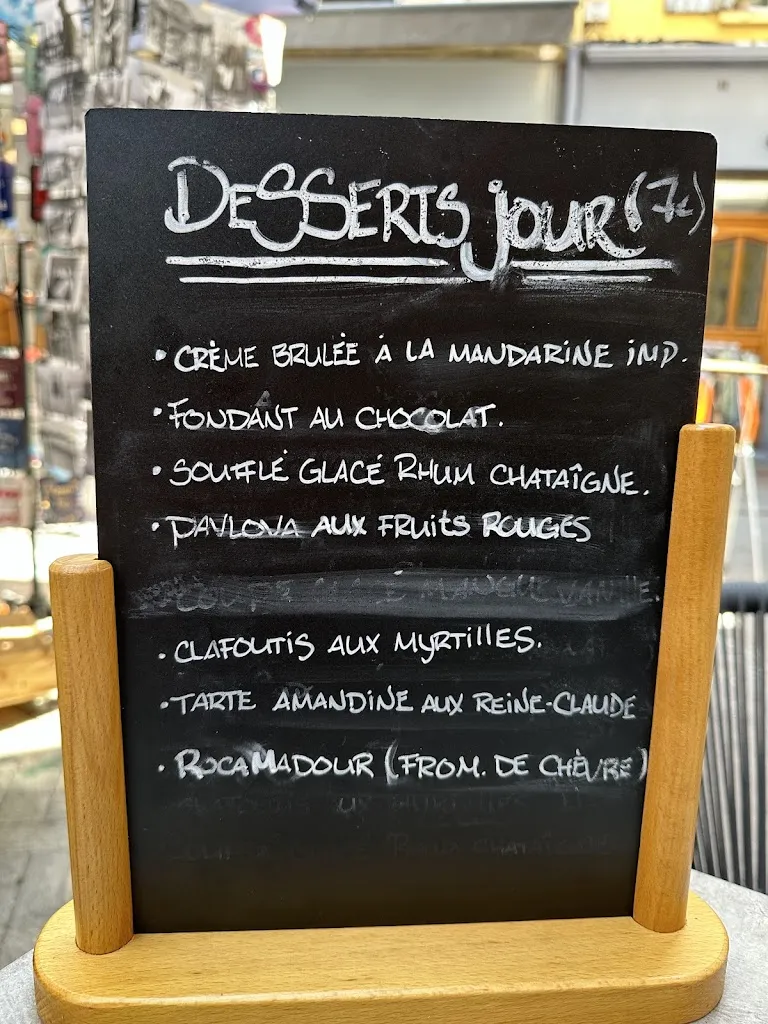 DESSERTS JOUR (7€)
• CRÈME BRULÉE À LA MANDARINE IMP.
• FONDANT AU CHOCOLAT.
• SOUFFLÉ GLACÉ RHUM CHATAÎGNE.
• PAVLOVA AUX FRUITS ROUGES
• CLAFOUTIS AUX MYRTILLES.
• TARTE AMANDINE AUX REINE-CLAUDE
• ROCAMADOUR (FROM. DE CHÈVRE)